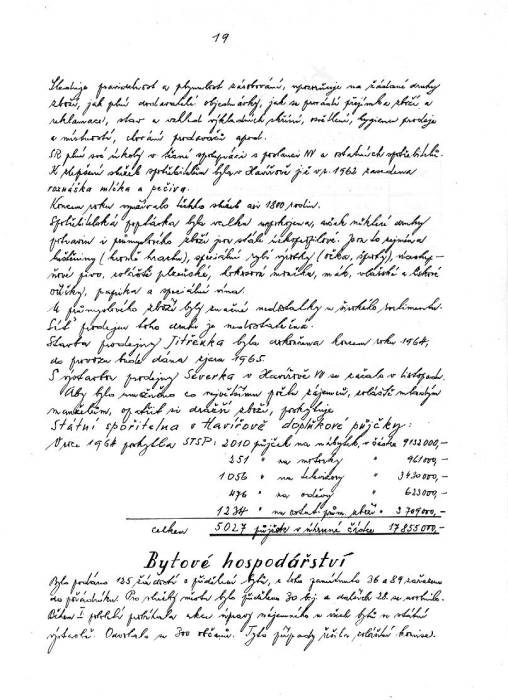 19
Sleduje pravidelnost a plynulost zásobování, upozorňuje na žádané druhy
zboží, jak plní dodavatelé objednávky, jak se provádí přejímka zboží a
reklamace, stav a vzhled výkladních skříní, osvětlení, hygienu prodeje
a místností, chování prodavačů apod.
SR plní své úkoly v těsné spolupráci s poslanci NV a ostatních spotřebitelů.
K zlepšení služeb spotřebitelům byla v Havířově již v r. 1962 zavedena
roznáška mléka a pečiva.
Koncem roku využívalo těchto služeb asi 1800 rodin.
Spotřebitelská poptávka byla vcelku uspokojena, avšak některé druhy
potravin i průmyslového zboží jsou stále úzkoprofilové. Jsou to zejména
luštěniny (kromě hrachu), speciální rybí výrobky (očka, šproty),
pivo, zvláště plzeňské, kokosová moučka, mák, vlašské a lískové
oříšky, paprika a speciální vína.
U průmyslového zboží byly značné nedostatky u širokého sortimentu.
Síť prodejen toho druhu je nedostatečná.
Stavba prodejny Jitřenka byla dokončena koncem roku 1964,
do provozu bude dána zjara 1965.
S výstavbou prodejny Severka v Havířově VI se začalo v listopadu.
Aby bylo umožněno co největšímu počtu zájemců, zvláště mladým
manželům, opatřit si dražší zboží, poskytuje
Státní spořitelna v Havířově doplňkové půjčky:
V roce 1964 poskytla STSP: 2010 půjček na nábytek, v částce 9132000,-
251 " na motorky " 961000,-
1056 " na televizory " 3430000,-
476 " na oděvy " 623000,-
1234 " na ostat. prům. zboží " 3709000,-
celkem 5027 půjček v úhrnné částce 17855000,-
Bytové hospodářství
Bylo podáno 125 žádostí o přidělení bytů, z toho zamítnuto 36 a 89 zařazeno
do pořadníku. Pro služby města bylo přiděleno 30 b.j. a dalších 28
I. pololetí probíhala akce úpravy nájemného u všech bytů ve státní
výstavbě. Odvolalo se 300 občanů. Tyto případy řešila zvláštní komise.